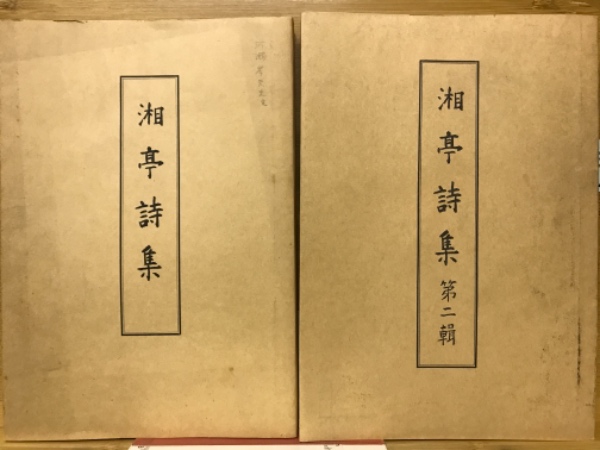 湘亭詩集
湘亭詩集 第二輯